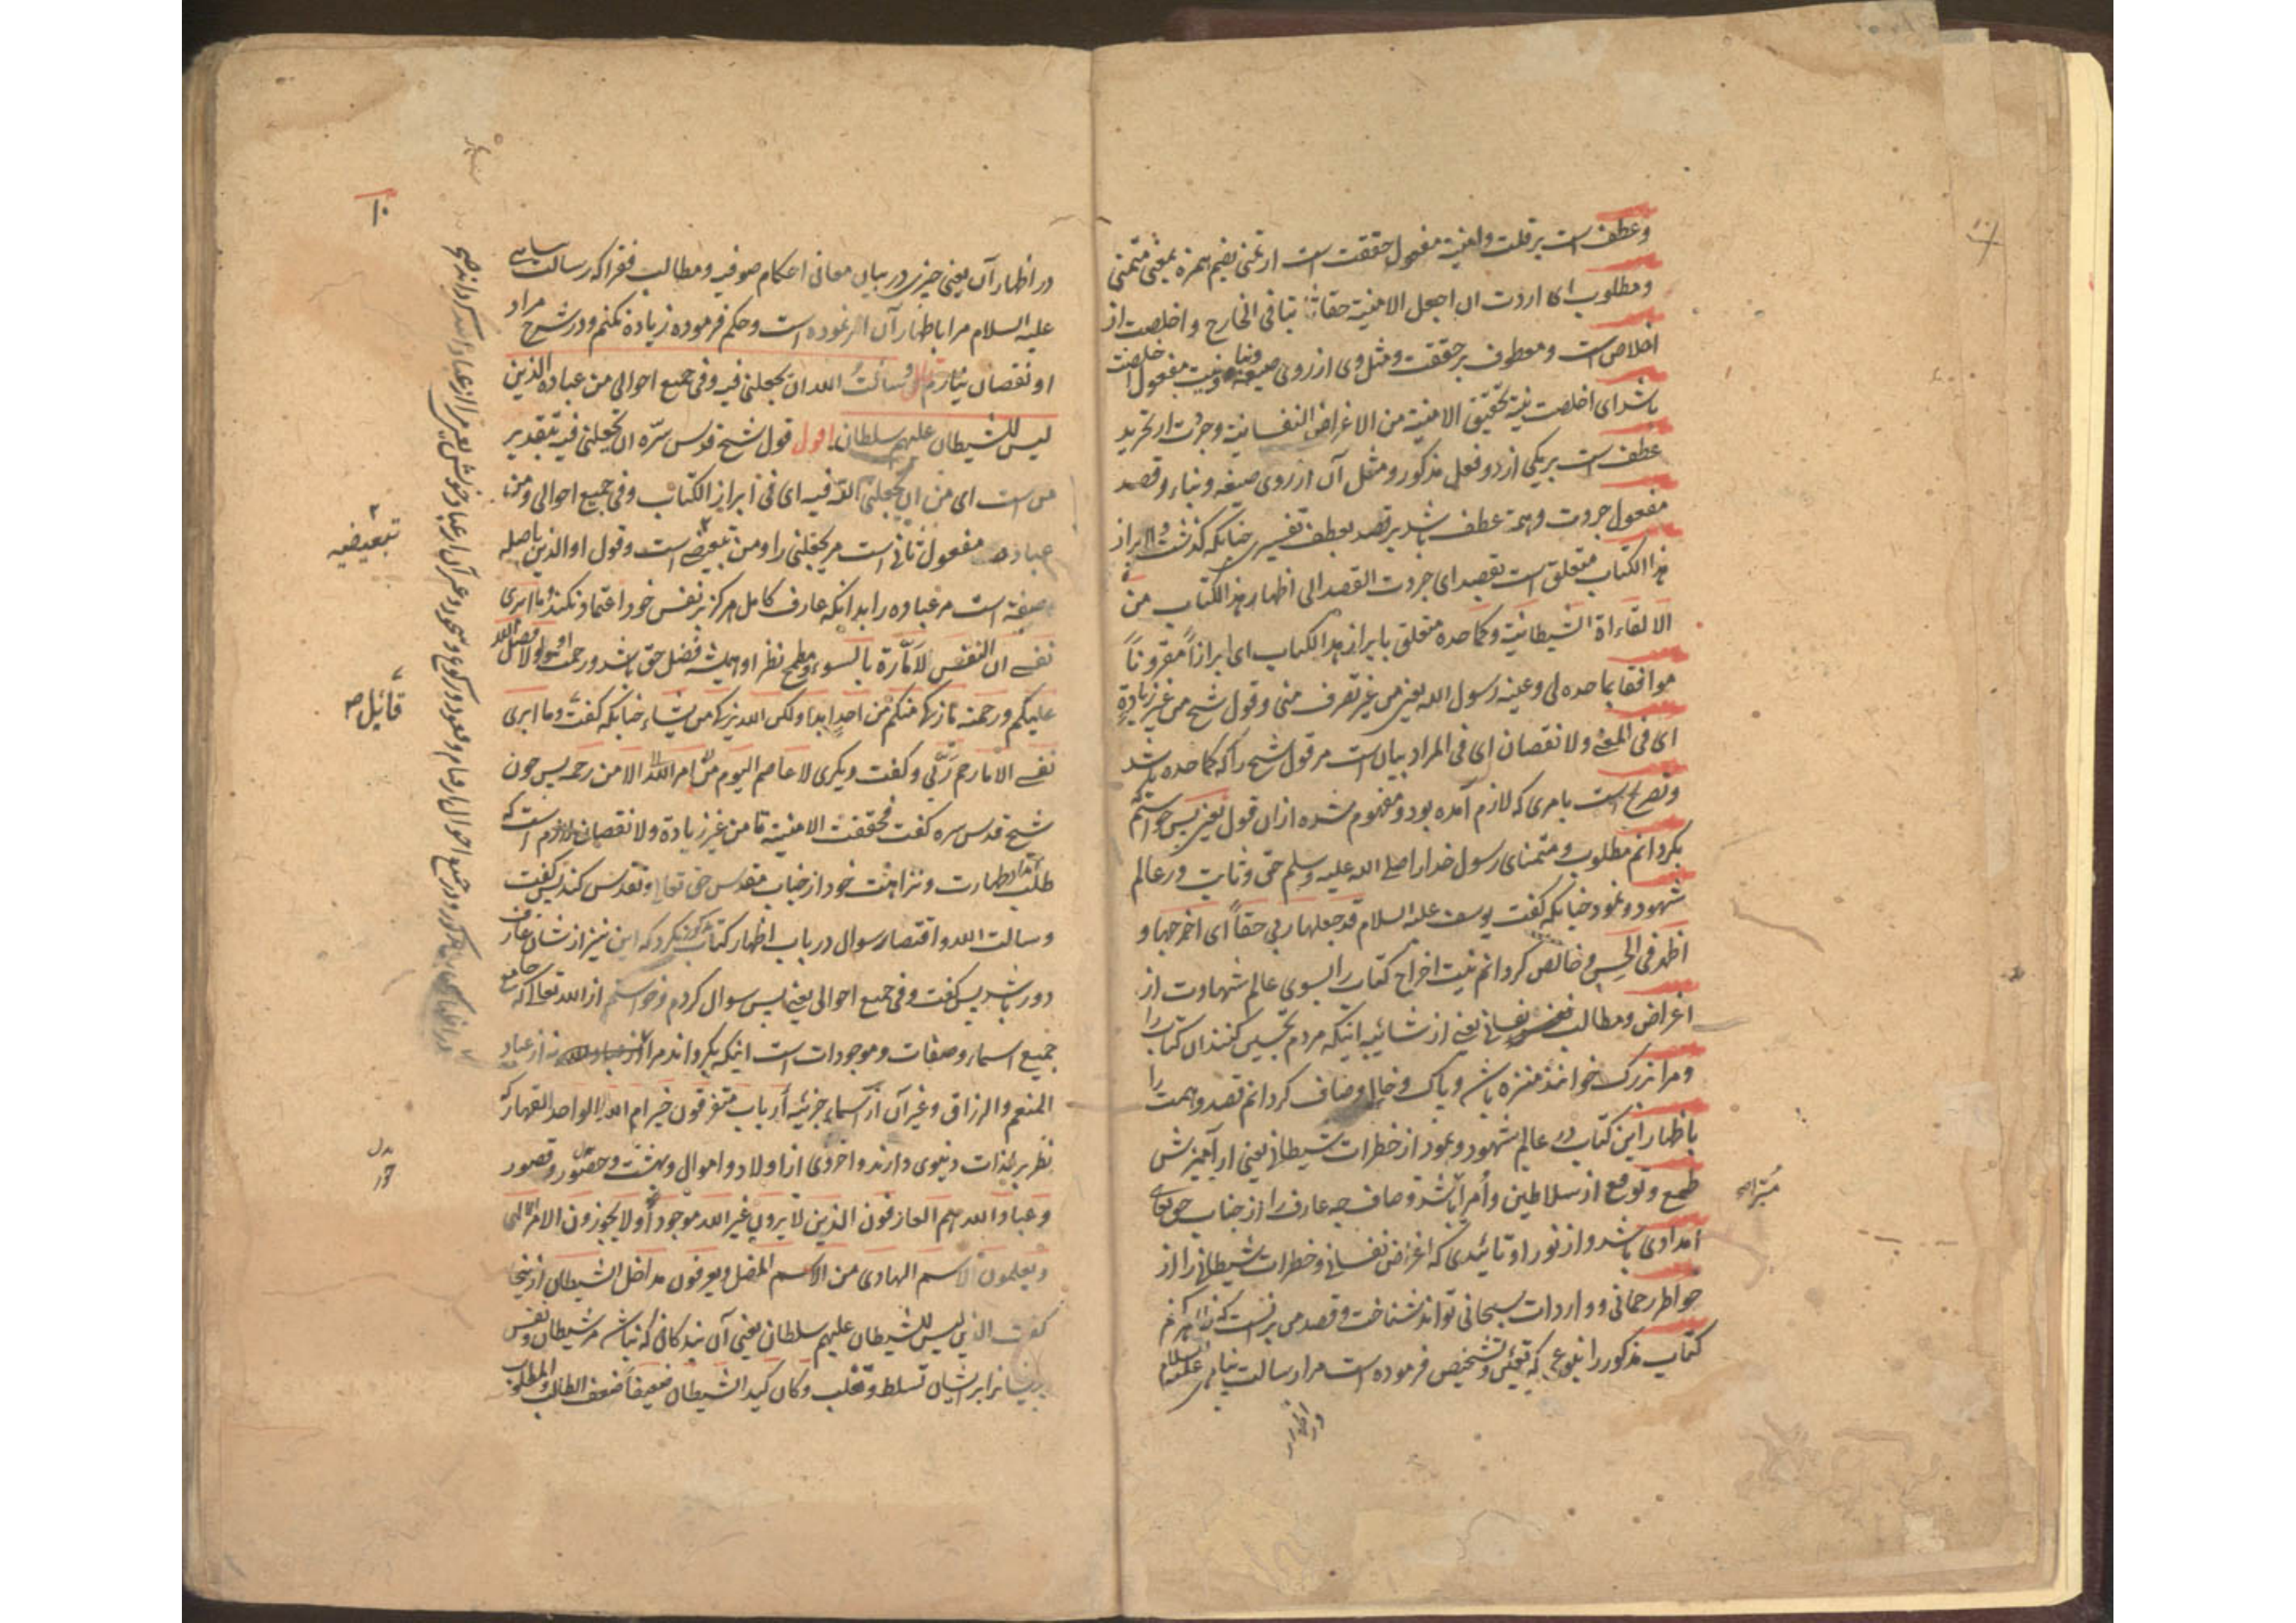 وعطف است بر قلت وامنیة مفعول حققت است از تمنی بضم همزه بمعنی متمنی
ومطلوب ای اردت ان اجعل الامنیة حقا ثابتا فی الخارج و اخلصت از
اخلاص است ومعطوف بر حققت ومثل وی از روی صیغه وبنا ونیت مفعول اخلصت
باشد ای اخلصت نیة تحقیق الامنیة من الاغراض النفسانیة وجردت از تجرید
عطف است بر یکی از دو فعل مذکور ومثل آن از روی صیغه وبناء وقصد
مفعول جردت وهمة عطف باشد بر قصد بعطف تفسیری چنانکه گذشت والی ابراز
هذا الکتاب متعلق است بقصد ای جردت القصد الی اظهار هذا الکتاب من
الالقاءاة الشیطانیة وکما حده متعلق بابراز هذا الکتاب ای ابرازاً مقروناً
موافقا بما حده لی وعینه رسول الله یعنی من غیر تصرف منی وقول شیخ من غیر زیادة
ای فی المعنی ولا نقصان ای فی المراد بیان است مر قول شیخ را که کما حده باشد
وتصریح است بامری که لازم آمده بود ومفهوم شده از ان قول یعنی پس خواستم که
بگردانم مطلوب ومتمنای رسول خدا را صلی الله علیه وسلم حق وثابت در عالم
شهود ونمود چنانکه گفت یوسف علیه السلام قد جعلها ربی حقاً ای اخرجها و
اظهر فی الحس وخالص گردانم نیت اخراج کتاب را بسوی عالم شهادت از
اغراض ومطالب نفسانی یعنی از شائبه اینکه مردم تحسین کنند ان کتاب را
ومرا بزرک خوانند منزه باشم وپاک وخالی وصاف گردانم قصد وهمت را
باظهار این کتاب در عالم شهود ونمود از خطرات شیطانی یعنی از آمیزش
طمع وتوقع از سلاطین وأمرا باشد وصاف چه عارف را از جناب حق تعالی
امدادی باشد واز نور او تائیدی که اغراض نفسانی وخطرات شیطانی را از
خواطر رحمانی وواردات سبحانی تواند شناخت وقصد من بر نیست که ظاهر کنم
کتاب مذکور را بنوعی که تعیین وتشخیص فرموده است مرا رسالت پناهی علیه السلام
در اظهار
در اظهار آن یعنی چیزی در بیان معانی احکام صوفیه ومطالب فقرا که رسالت پناهی
علیه السلام مرا باظهار آن امر نموده است وحکم فرموده زیاده نکنم ودر شرح مراد
او نقصان نیارم وسألت الله ان یجعلنی فیه وفی جمیع احوالی من عباده الذین
لیس للشیطان علیهم سلطان اقول قول شیخ قدس سره ان یجعلنی فیه بتقدیر
من است ای من ان یجعلنی الله فیه ای فی ابراز الکتاب وفی جمیع احوالی ومن
عباده مفعول ثانی است مر یجعلنی را ومن تبعیض است وقول او الذین باصله
صفة است مر عباده را بدانکه عارف کامل هرکز بر نفس خود اعتماد نکند وما ابری
نفسی ان النفس لامّارة بالسوء ومطمح نظر او همیشه فضل حق باشد ورحمت او ولولا فضل الله
علیکم ورحمته مازکی منکم من احدٍ ابدا ولکن الله یزکی من یشاء چنانکه گفت وما ابری
نفسی الا ما رحم ربّی وکفت دیکری لا عاصم الیوم من امر الله الا من رحم پس چون
شیخ قدس سره کفت فحققت الامنیة تا من غیر زیادة ولا نقصان لازم است که
طلب امداد طهارت ونزاهت خود از جناب مقدس حق تعالی وتقدس کند پس کفت
وسالت الله واقتصار سوال در باب اظهار کتاب نکرد که این نیز از شان عارف
دور باشد پس کفت وفی جمیع احوالی یعنی پس سوال کردم وخواستم از الله تعالی که جامع
جمیع اسماء وصفات وموجودات است اینکه بگرداند مرا از عباد الله نه از عباد
المنعم والرزاق وغیر آن از اسماء جزئیه أرباب متفرقون خیر ام الله الواحد القهار که
نظر بر لذات دنیوی دارند واخروی از اولاد واموال وبهشت وحور وقصور
وعباد الله هم العارفون الذین لا یرون غیر الله موجوداً ولا یجوزون الامر الالهی
ویعلمون الاسم الهادی من الاسم المضل ویعرفون مداخل الشیطان از اینجا
کفت الذین لیس للشیطان علیهم سلطان یعنی آن بندگانی که نباشد مر شیطان ونفس
را بر ایشان تسلط وتغلب وکان کید الشیطان ضعیفاً ضعف الطالب والمطلوب
۱۰
تبعیضیه
قائل
حور